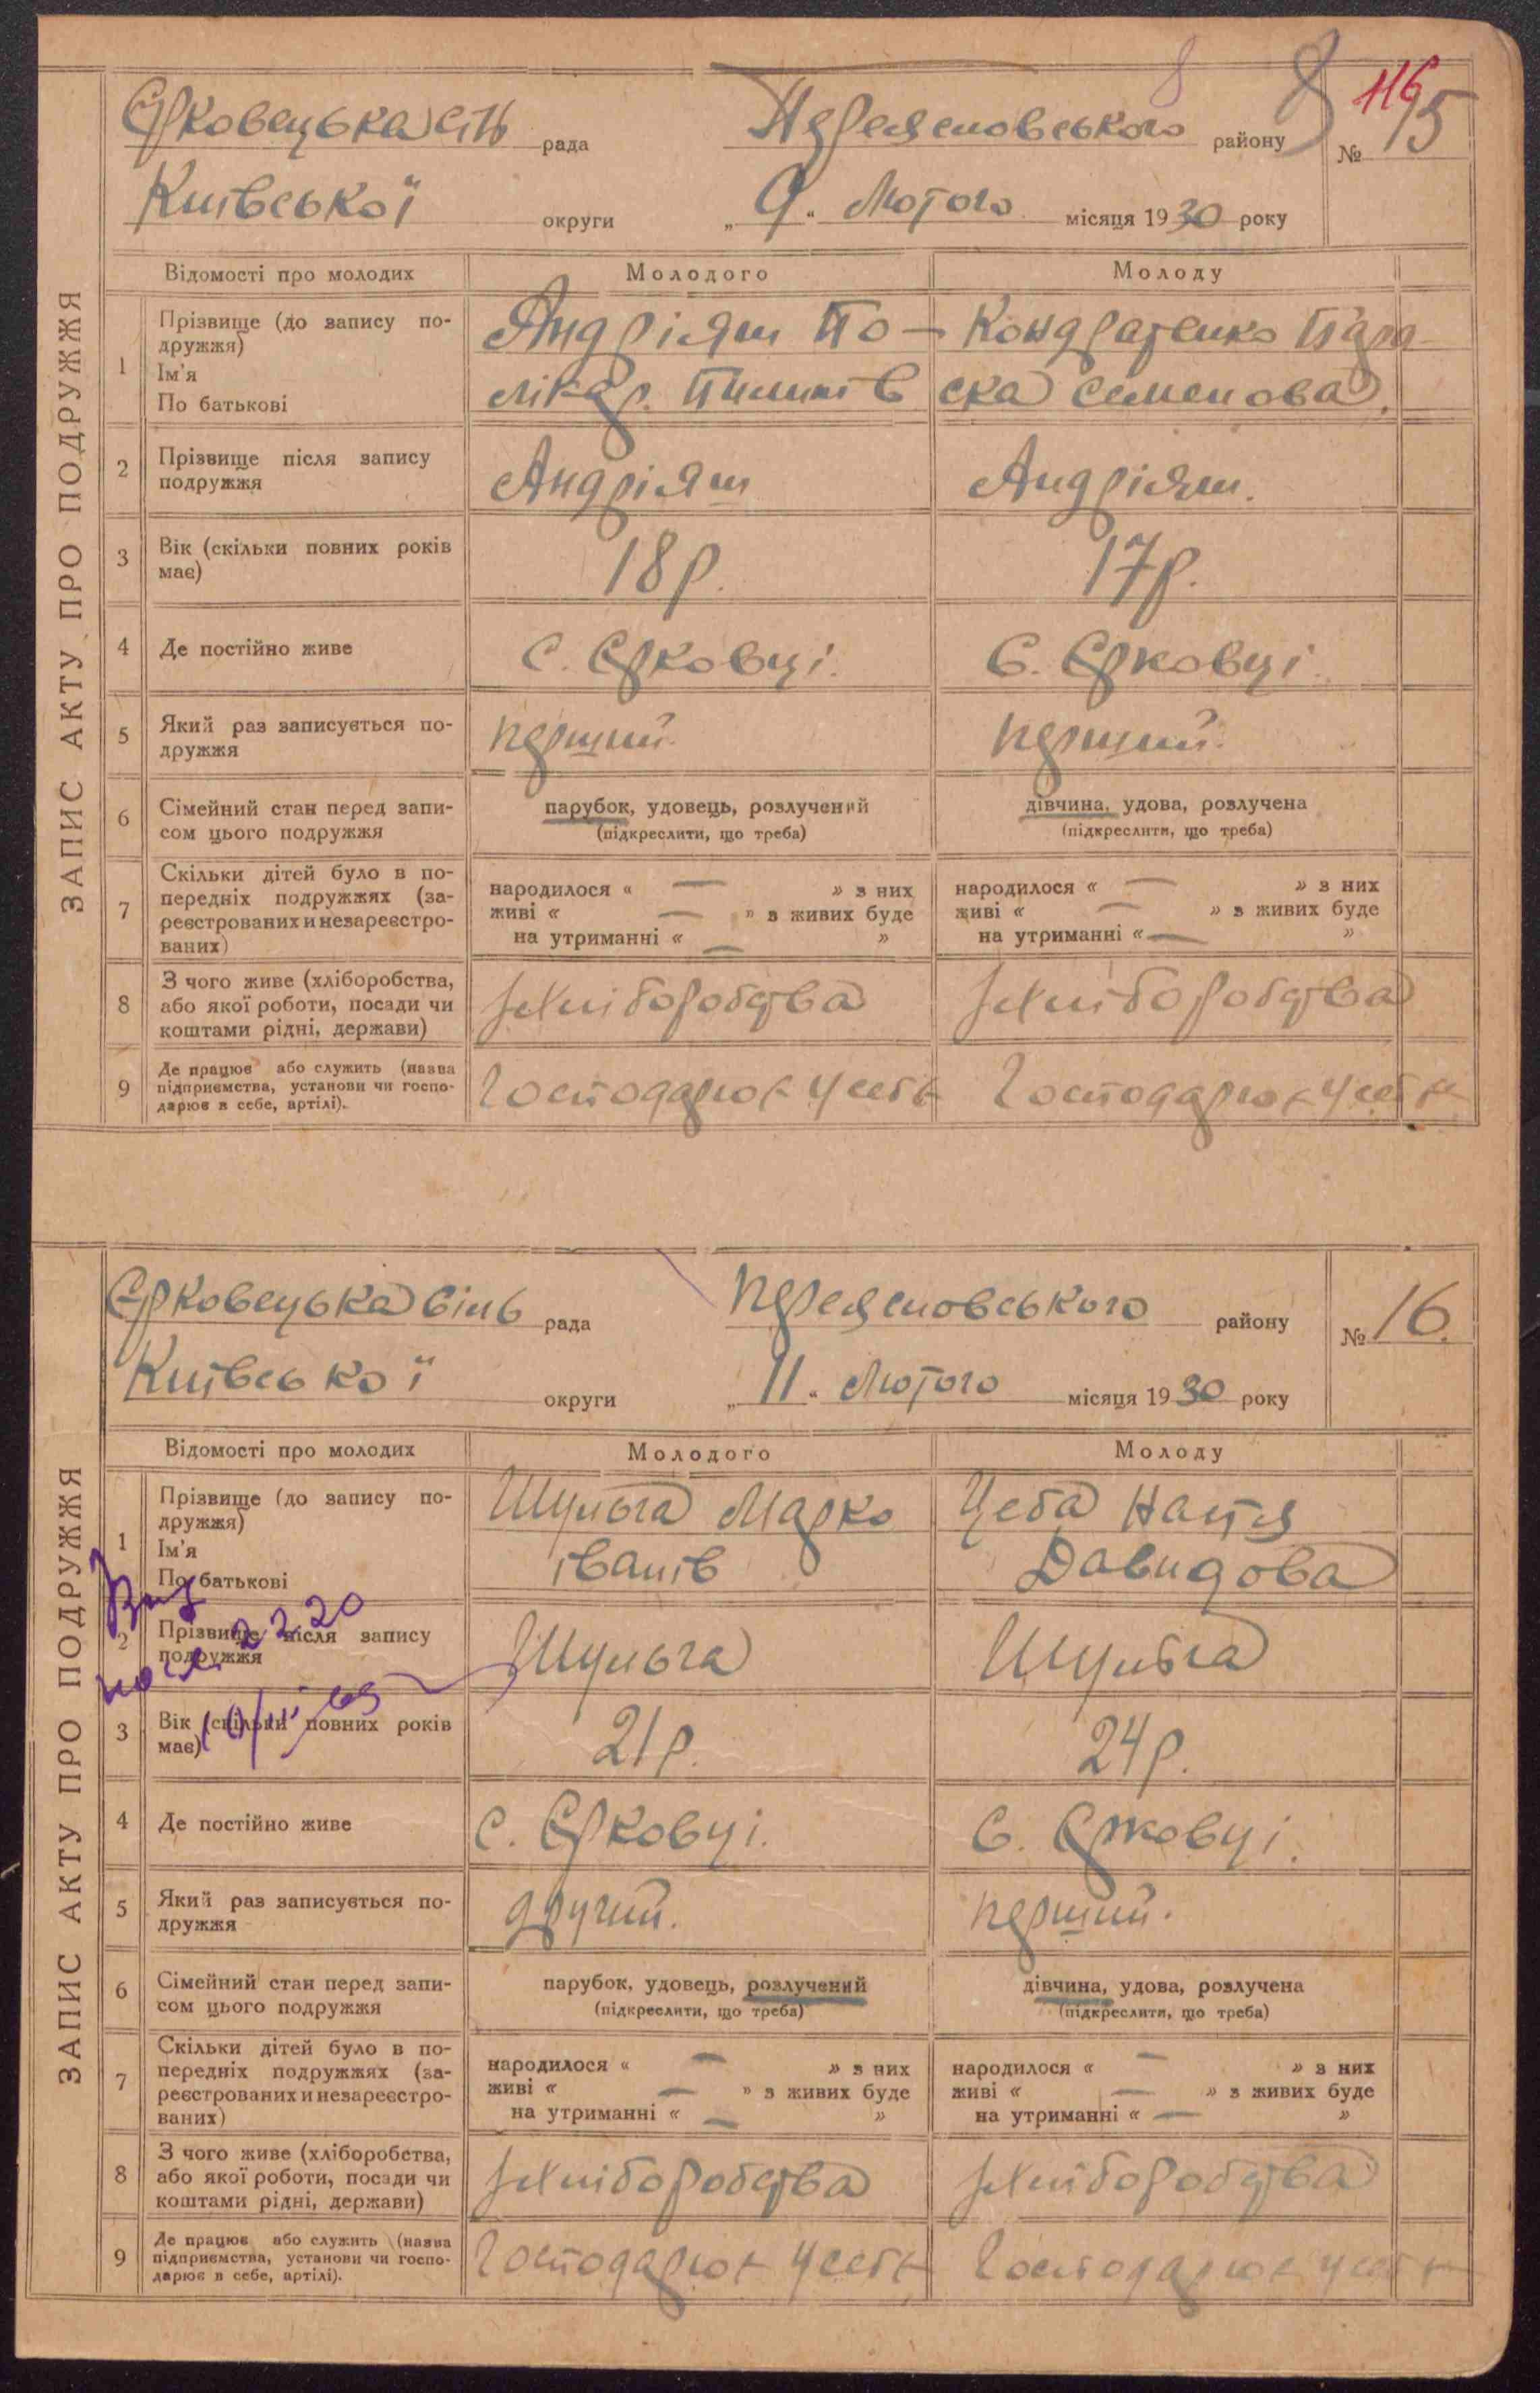 8 8 116
Єрковецька сіль рада Переяславського району № 15
Київської округи „ 9 “ Лютого місяця 1930 року
ЗАПИС АКТУ ПРО ПОДРУЖЖЯ
Відомості про молодих Молодого Молоду
1 Прізвище (до запису по-
дружжя)
Ім'я
По батькові
Андріяш По-
лікар. Пилипів
Кондратенко Пара-
ска Семенова.
2 Прізвище після запису
подружжя
Андріяш Андріяш.
3 Вік (скільки повних років
має)
18 р. 17 р.
4 Де постійно живе с. Єрковці. с. Єрковці.
5 Який раз записується по-
дружжя
перший. перший.
6 Сімейний стан перед запи-
сом цього подружжя
парубок, удовець, розлучений
(підкреслити, що треба)
дівчина, удова, розлучена
(підкреслити, що треба)
7 Скільки дітей було в по-
передніх подружжях (за-
реєстрованих и незареєстро-
ваних)
народилося « — » з них
живі « — » з живих буде
на утриманні « — »
народилося « — » з них
живі « — » з живих буде
на утриманні « — »
8 З чого живе (хліборобства,
або якої роботи, посади чи
коштами рідні, держави)
з хліборобства з хліборобства
9 Де працює або служить (назва
підприємства, установи чи госпо-
дарює в себе, артілі).
Господарює у себе Господарює у себе
Єрковецька сіль рада Переяславського району № 16.
Київської округи „ 11 “ Лютого місяця 1930 року
ЗАПИС АКТУ ПРО ПОДРУЖЖЯ
Відомості про молодих Молодого Молоду
1 Прізвище (до запису по-
дружжя)
Ім'я
По батькові
Шульга Марко
Іванів
Цеба Настя
Давидова
2 Прізвище після запису
подружжя
Шульга Шульга
3 Вік (скільки повних років
має)
21 р. 24 р.
4 Де постійно живе с. Єрковці. с. Єрковці.
5 Який раз записується по-
дружжя
другий. перший.
6 Сімейний стан перед запи-
сом цього подружжя
парубок, удовець, розлучений
(підкреслити, що треба)
дівчина, удова, розлучена
(підкреслити, що треба)
7 Скільки дітей було в по-
передніх подружжях (за-
реєстрованих и незареєстро-
ваних)
народилося « — » з них
живі « — » з живих буде
на утриманні « — »
народилося « — » з них
живі « — » з живих буде
на утриманні « — »
8 З чого живе (хліборобства,
або якої роботи, посади чи
коштами рідні, держави)
з хліборобства з хліборобства
9 Де працює або служить (назва
підприємства, установи чи госпо-
дарює в себе, артілі).
Господарює у себе Господарює у себе